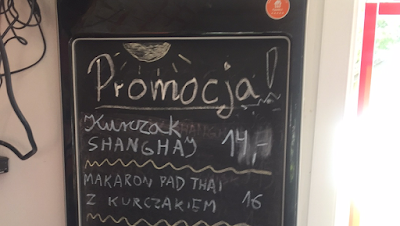 Promocja!
Kurczak
SHANGHAJ 14,-
MAKARON PAD THAI
Z KURCZAKIEM 16